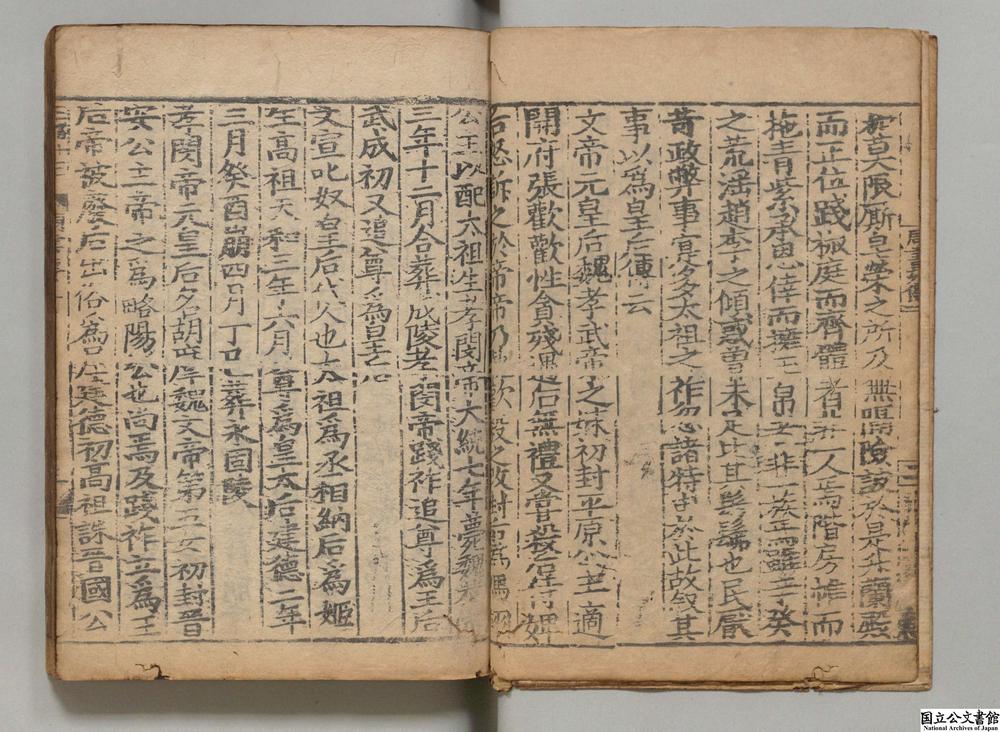 莫限廝皂榮之所及無隔險詖於是升蘭殿
而正位踐椒庭而齊體者非一人焉階房帷而
拖青紫承恩倖而擁玉帛者非一族焉雖辛癸
之荒淫趙李之傾惑曾未足比其髣髴也民厭
苛政弊事實多太祖之祚忽諸特由於此故敘其
事以為皇后傳云
文帝元皇后魏孝武帝之妹初封平原公主適
開府張歡歡性貪殘遇后無禮又嘗殺后侍婢
后怒訴之於帝帝乃執歡殺之改封后為馮翊
公主以配太祖生孝閔帝大統七年薨魏恭帝
三年十二月合葬成陵孝閔帝踐祚追尊為王后
武成初又追尊為皇后
文宣叱奴皇后代人也太祖為丞相納后為姬
生高祖天和二年六月尊為皇太后建德三年
三月癸酉崩四月丁巳葬永固陵
孝閔帝元皇后名胡摩魏文帝第五女初封晉
安公主帝之為略陽公也尚焉及踐祚立為王
后帝被廢后出俗為尼建德初高祖誅晉國公
国立公文書館
National Archives of Japan